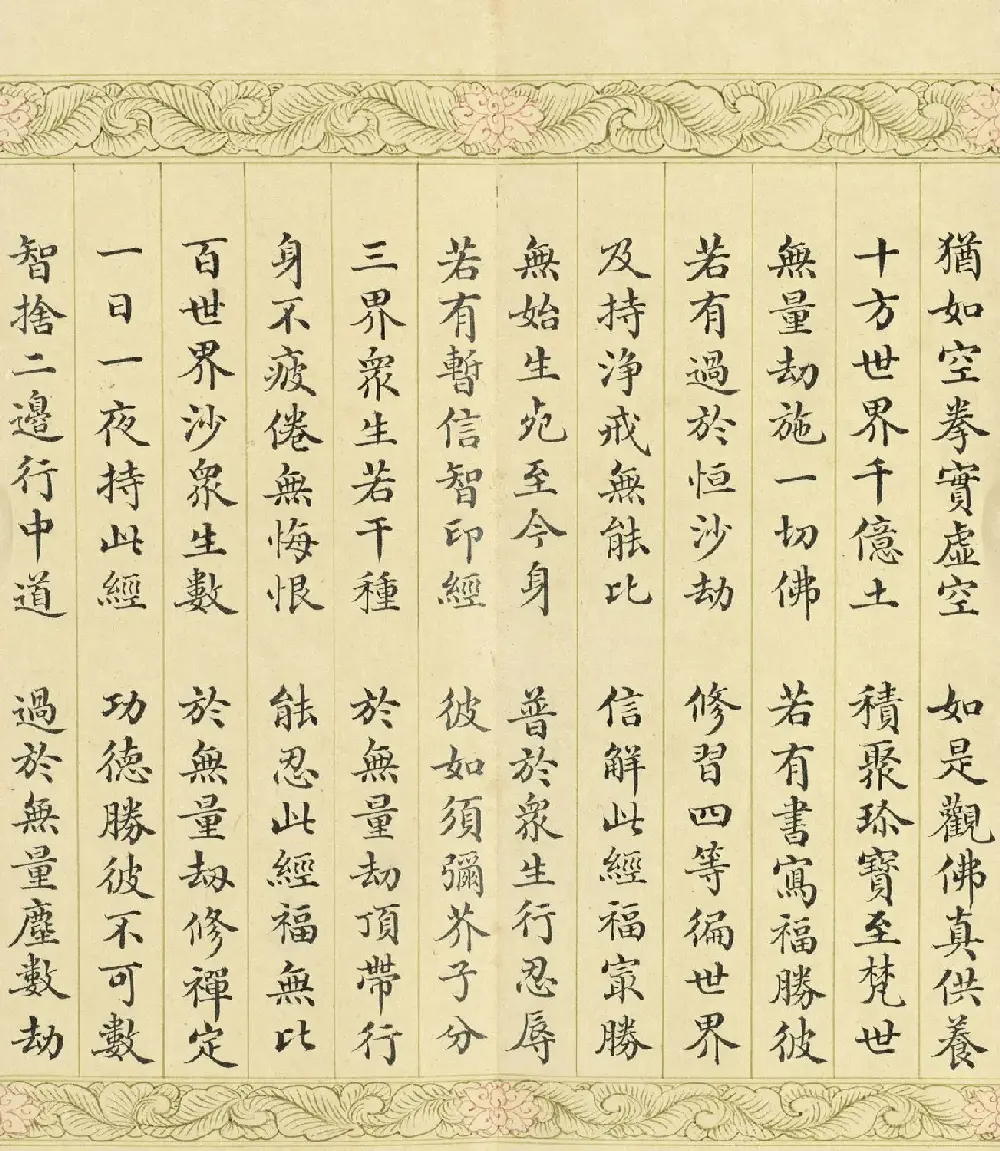 猶如空拳實虛空 如是觀佛真供養
十方世界千億土 積聚珎寶至梵世
無量劫施一切佛 若有書寫福勝彼
若有過於恒沙劫 修習四等徧世界
及持淨戒無能比 信解此經福寂勝
無始生死至今身 普於衆生行忍辱
若有暫信智印經 彼如須彌芥子分
三界衆生若干種 於無量劫頂帶行
身不疲倦無悔恨 能忍此經福無比
百世界沙衆生數 於無量劫修禪定
一日一夜持此經 功德勝彼不可數
智捨二邊行中道 過於無量塵數劫